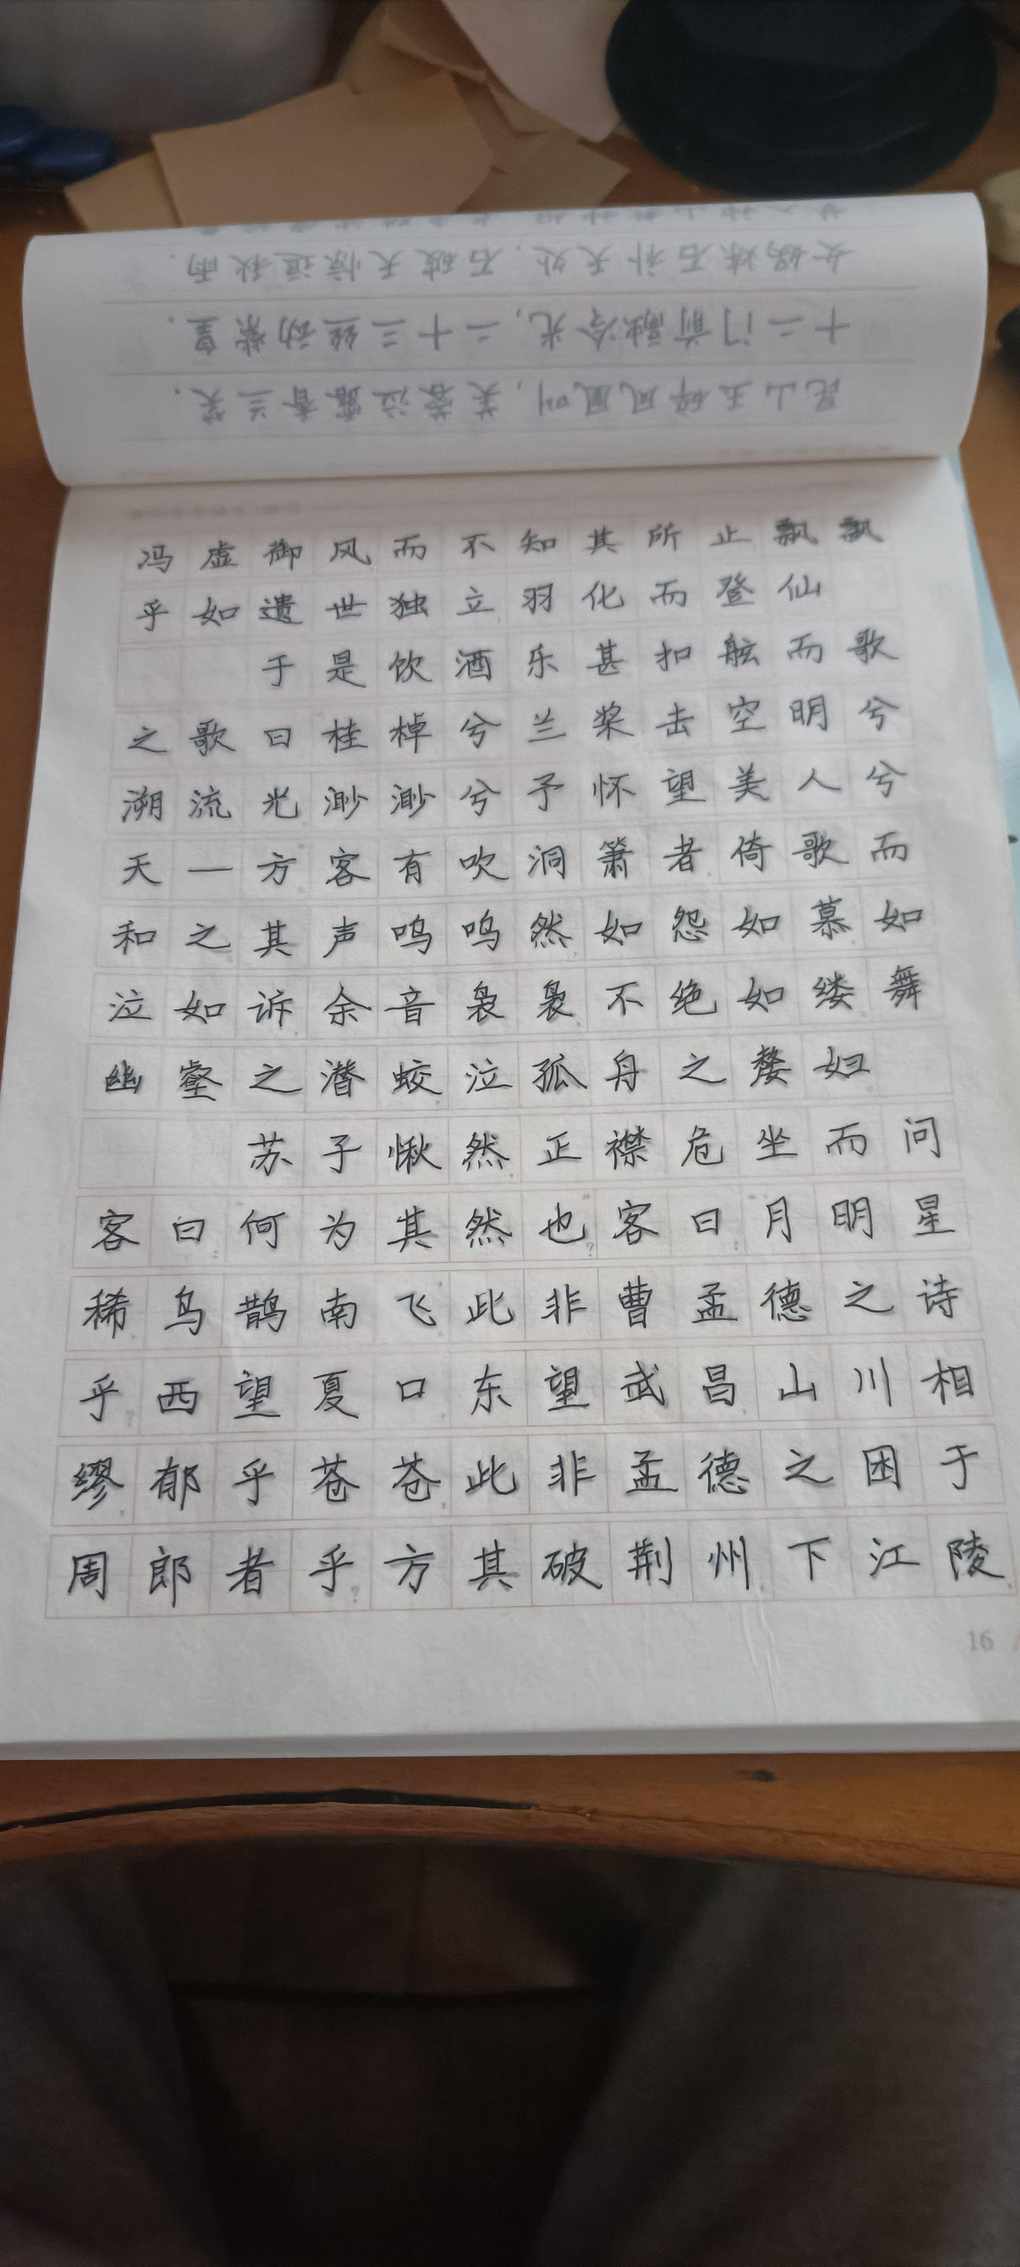 女娲炼石补天处，石破天惊逗秋雨．
十二门前融冷光，二十三丝动紫皇．
昆山玉碎凤凰叫，芙蓉泣露香兰笑．
冯虚御风而不知其所止飘飘
乎如遗世独立羽化而登仙
于是饮酒乐甚扣舷而歌
之歌曰桂棹兮兰桨击空明兮
溯流光渺渺兮予怀望美人兮
天一方客有吹洞箫者倚歌而
和之其声呜呜然如怨如慕如
泣如诉余音袅袅不绝如缕舞
幽壑之潜蛟泣孤舟之嫠妇
苏子愀然正襟危坐而问
客曰何为其然也客曰月明星
稀乌鹊南飞此非曹孟德之诗
乎西望夏口东望武昌山川相
缪郁乎苍苍此非孟德之困于
周郎者乎方其破荆州下江陵
16